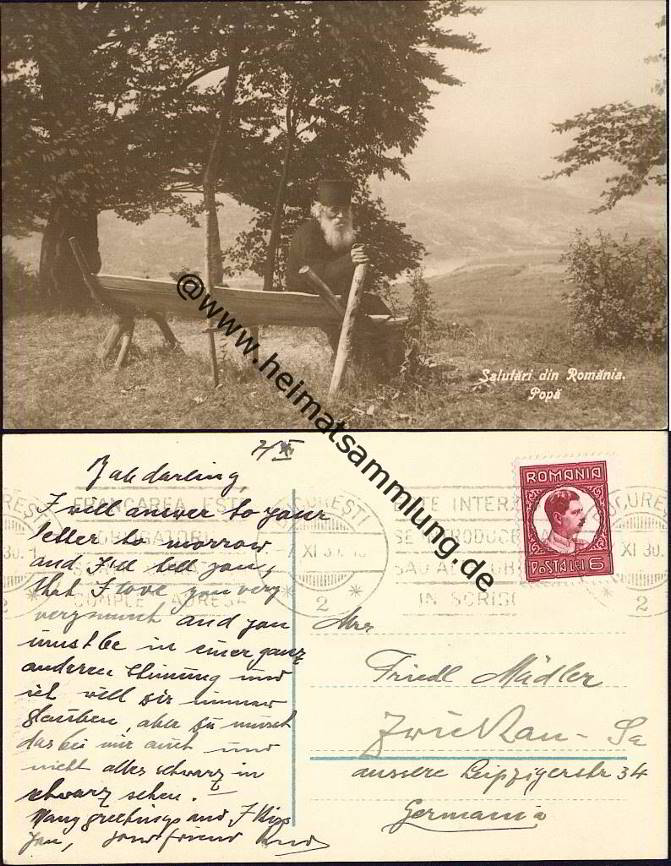 Salutări din România.
Popă
@www.heimatsammlung.de
7/XI
Bab darling,
I will answer to your
letter to morrow
and I'll tell you,
that I love you very
very much and you
must be in einer ganz
anderen Stimung und
ich will dir immer
glauben, aber du musst
das bei mir auch und
nicht alles schwarz in
schwarz sehen.
Many greetings and I kiss
you, your friend
ROMANIA
POSTA LEI 6
FRANCAREA ESTE
OBLIGATORI
COMPLE ADRESA
BUCUREŞTI
7 XI 30
2
STE INTERZ
SE INTRODUCE
SAU A
IN SCRISO
BUCUREŞTI
XI 30
2
Mrs
Friedl Mädler
Zwickau - Sa
aussere Leipzigerstr 34
Germania